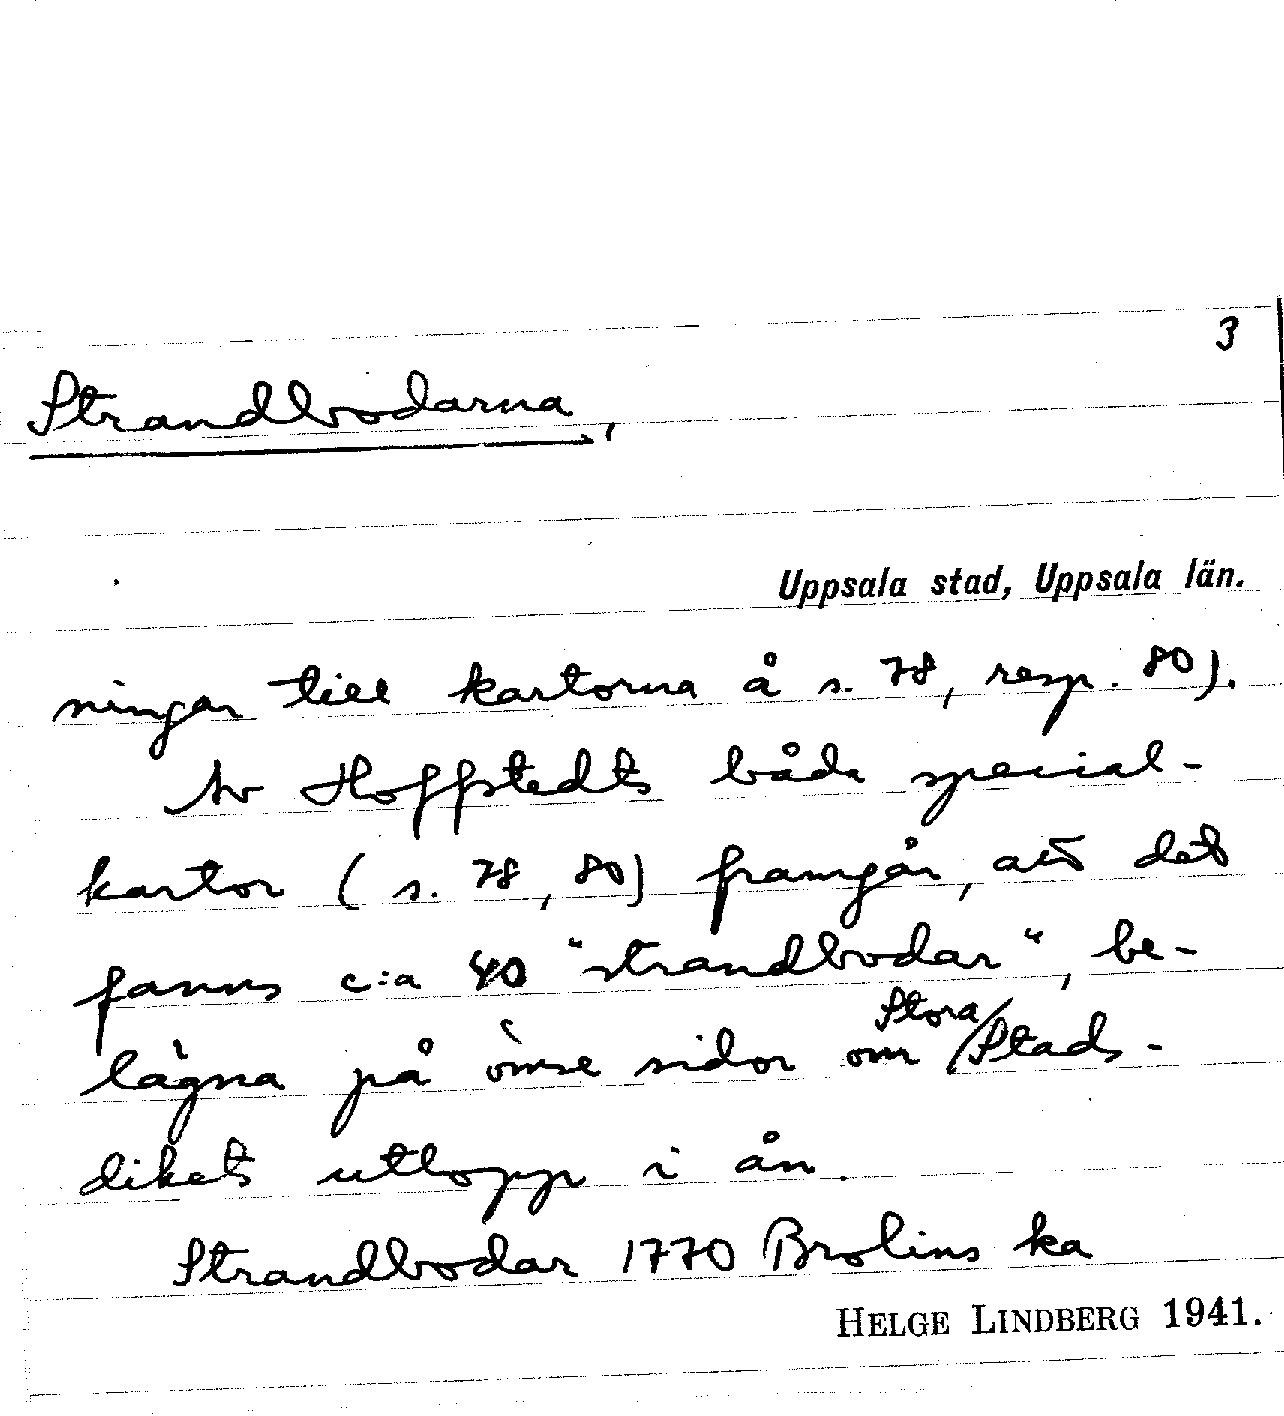 3
Strandbodarna,
Uppsala stad, Uppsala län.
ningar till kartorna å s. 78, resp. 80).
Av Hoffstedts båda special-
kartor (s. 78, 80) framgår, att det
fanns c:a 40 "strandbodar", be-
lägna på ömse sidor om Stora Stads-
dikets utlopp i ån.
Strandbodar 1770 Brolins ka
HELGE LINDBERG 1941.